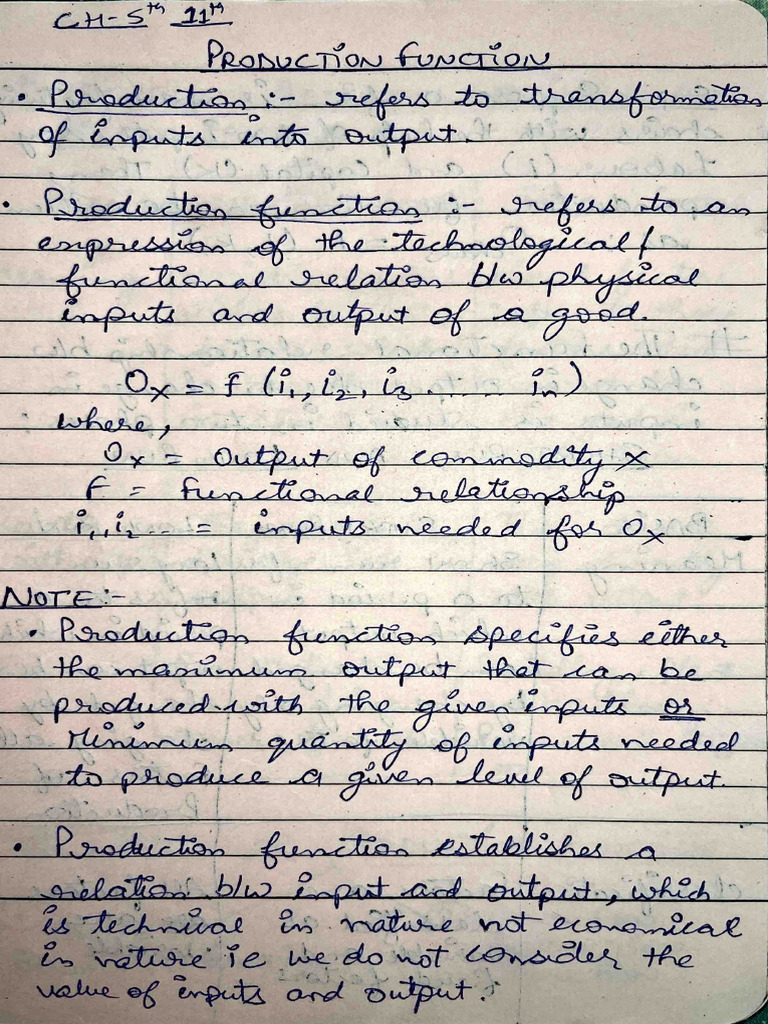 CH-5th 11th
PRODUCTION FUNCTION
• Production :- refers to transformation
of inputs into output.
• Production function :- refers to an
expression of the technological/
functional relation b/w physical
inputs and output of a good.
Ox = f (i1, i2, i3 ...... in)
where,
Ox = Output of commodity X
F = functional relationship
i1, i2 ... = inputs needed for Ox
NOTE:-
• Production function specifies either
the maximum output that can be
produced with the given inputs or
Minimum quantity of inputs needed
to produce a given level of output.
• Production function establishes a
relation b/w input and output, which
is technical in nature not economical
in nature ie we do not consider the
value of inputs and output.